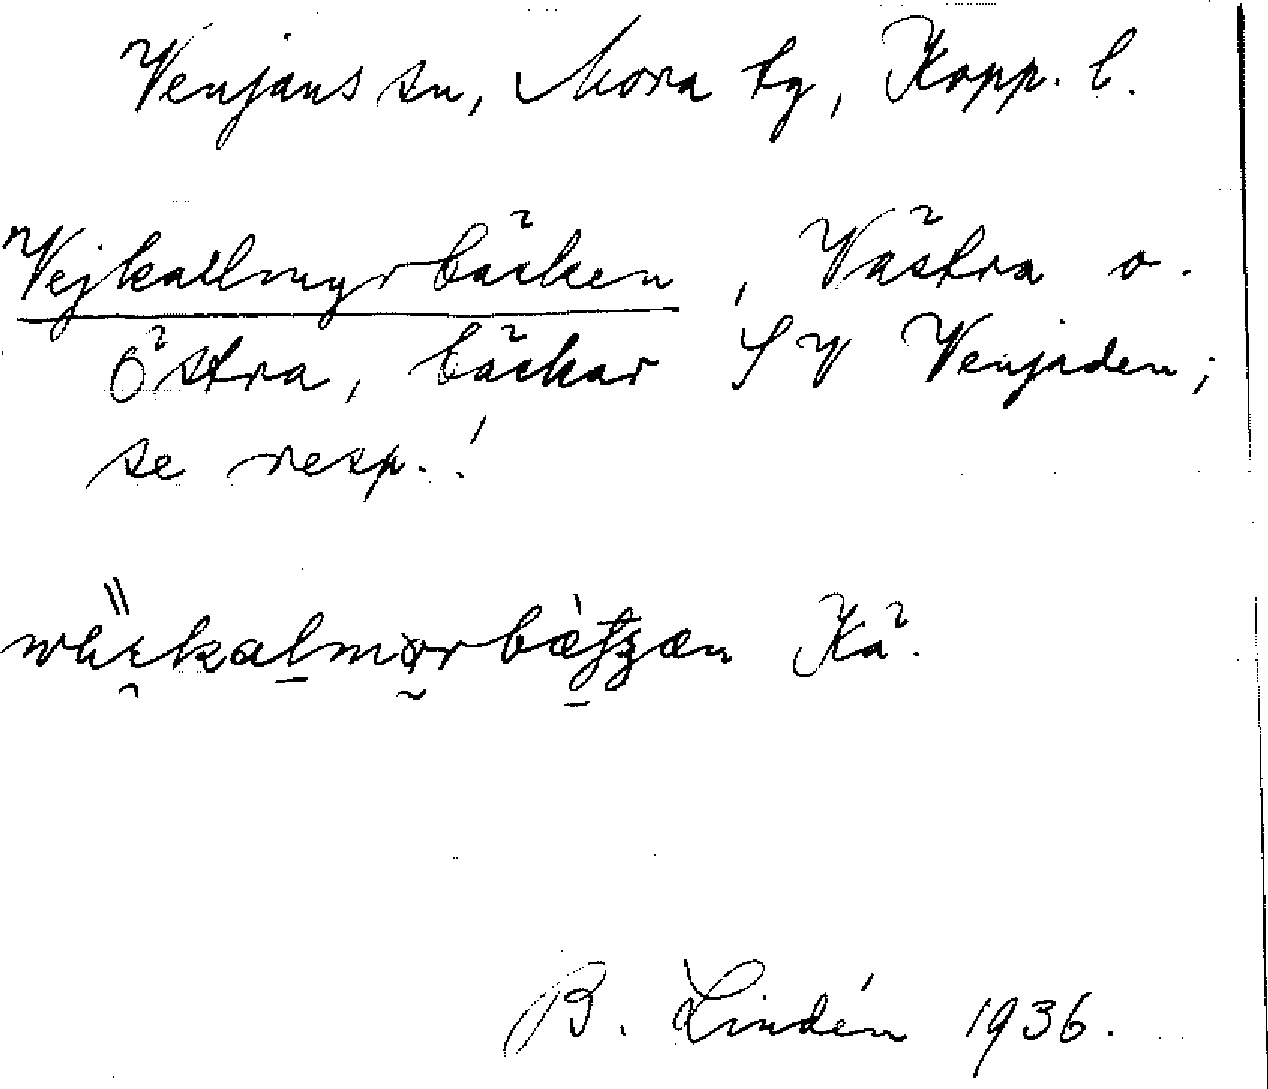 Venjans sn, Mora tg, Kopp. l.
Vejkallmyrbäcken, Västra o.
Östra, bäckar SV Venjaden;
se resp.!
Kå.
B. Lindén 1936.